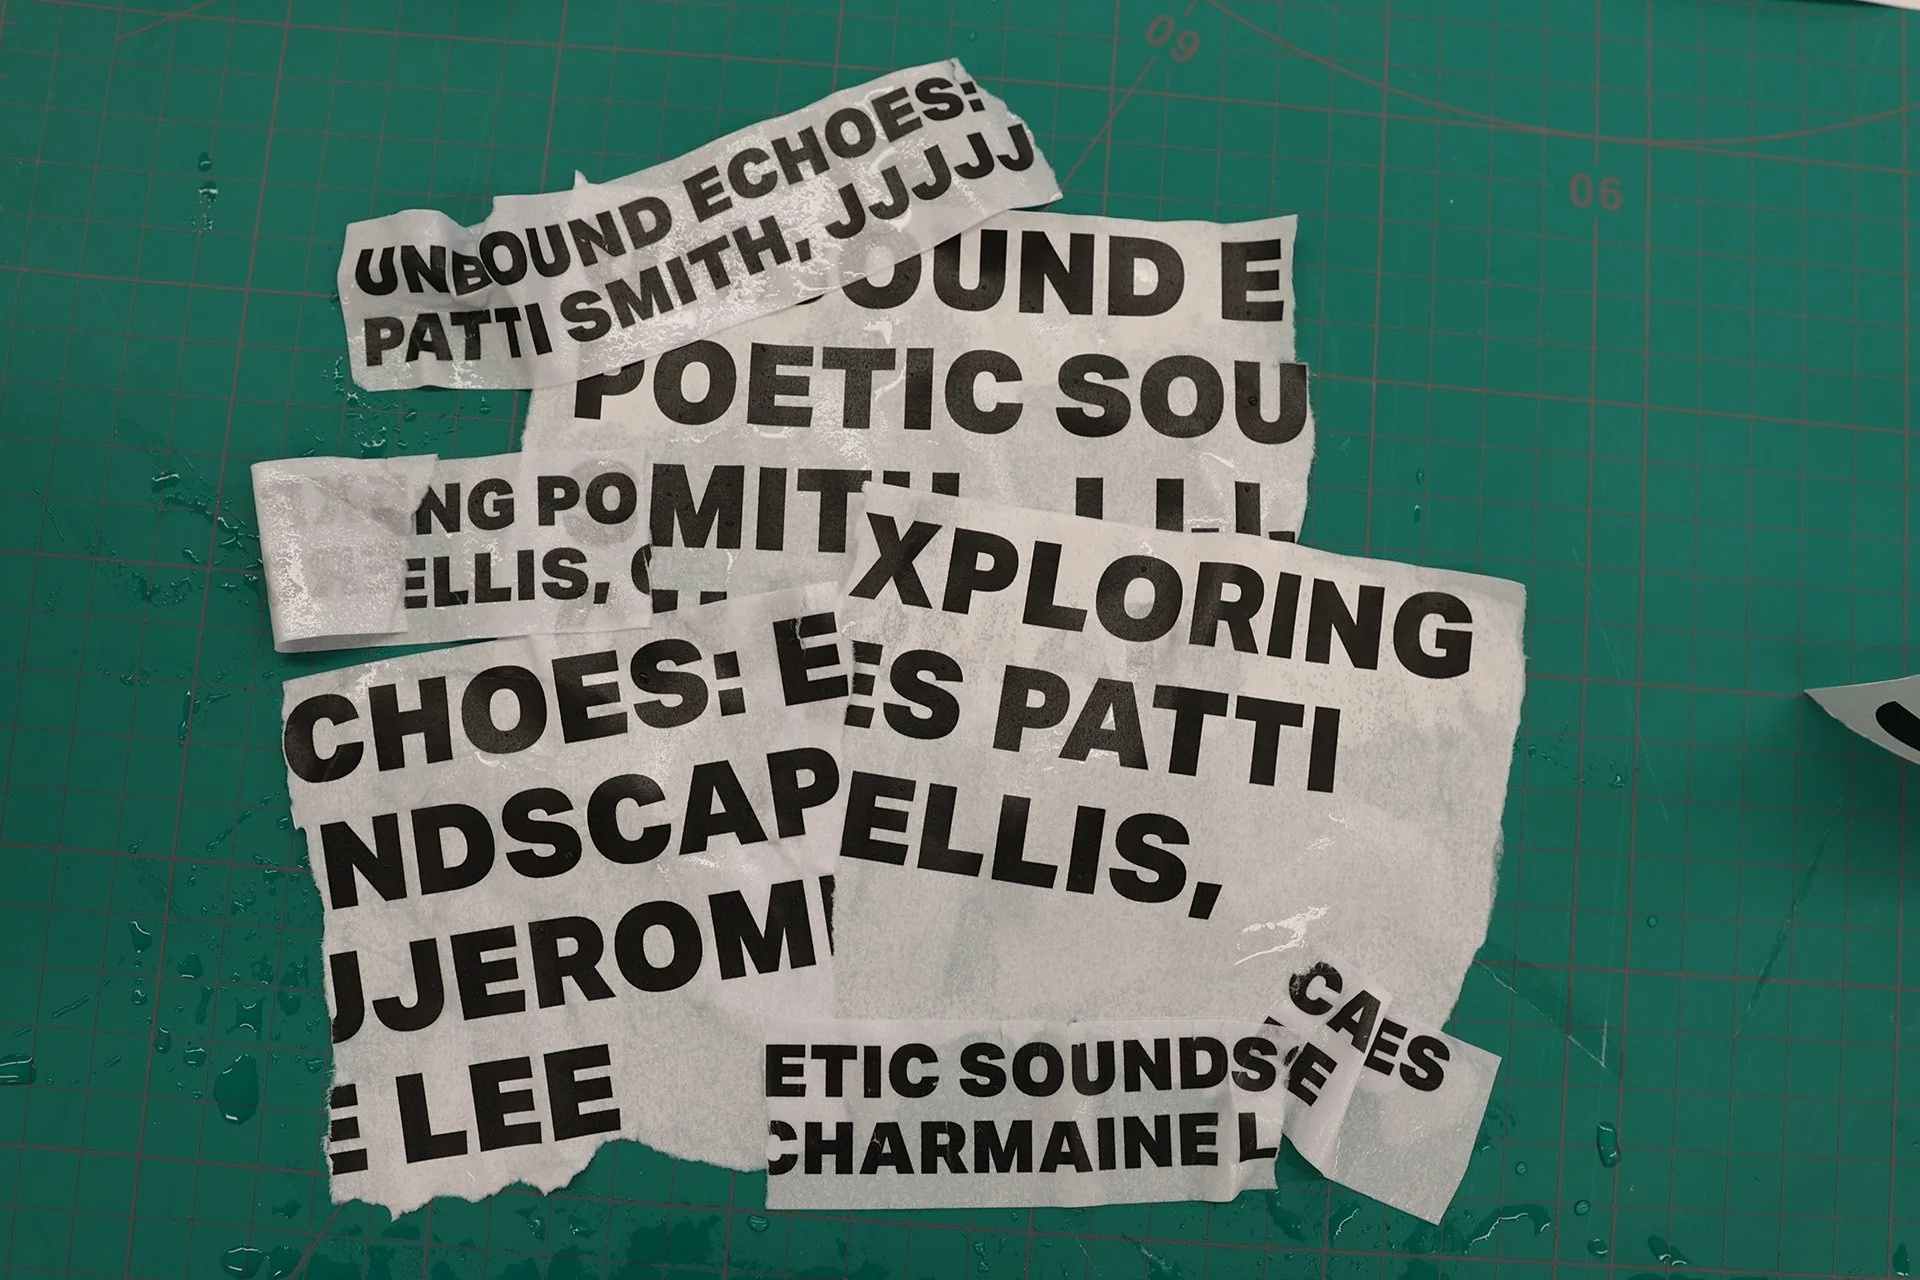 09
06
UNBOUND ECHOES:
PATTI SMITH, JJJJJ
OUND E
POETIC SOU
MITH
NG PO
ELLIS,
XPLORING
ES PATTI
ELLIS,
CHOES: E
NDSCAP
JJEROM
E LEE
ETIC SOUNDS
CHARMAINE L
CAES
E